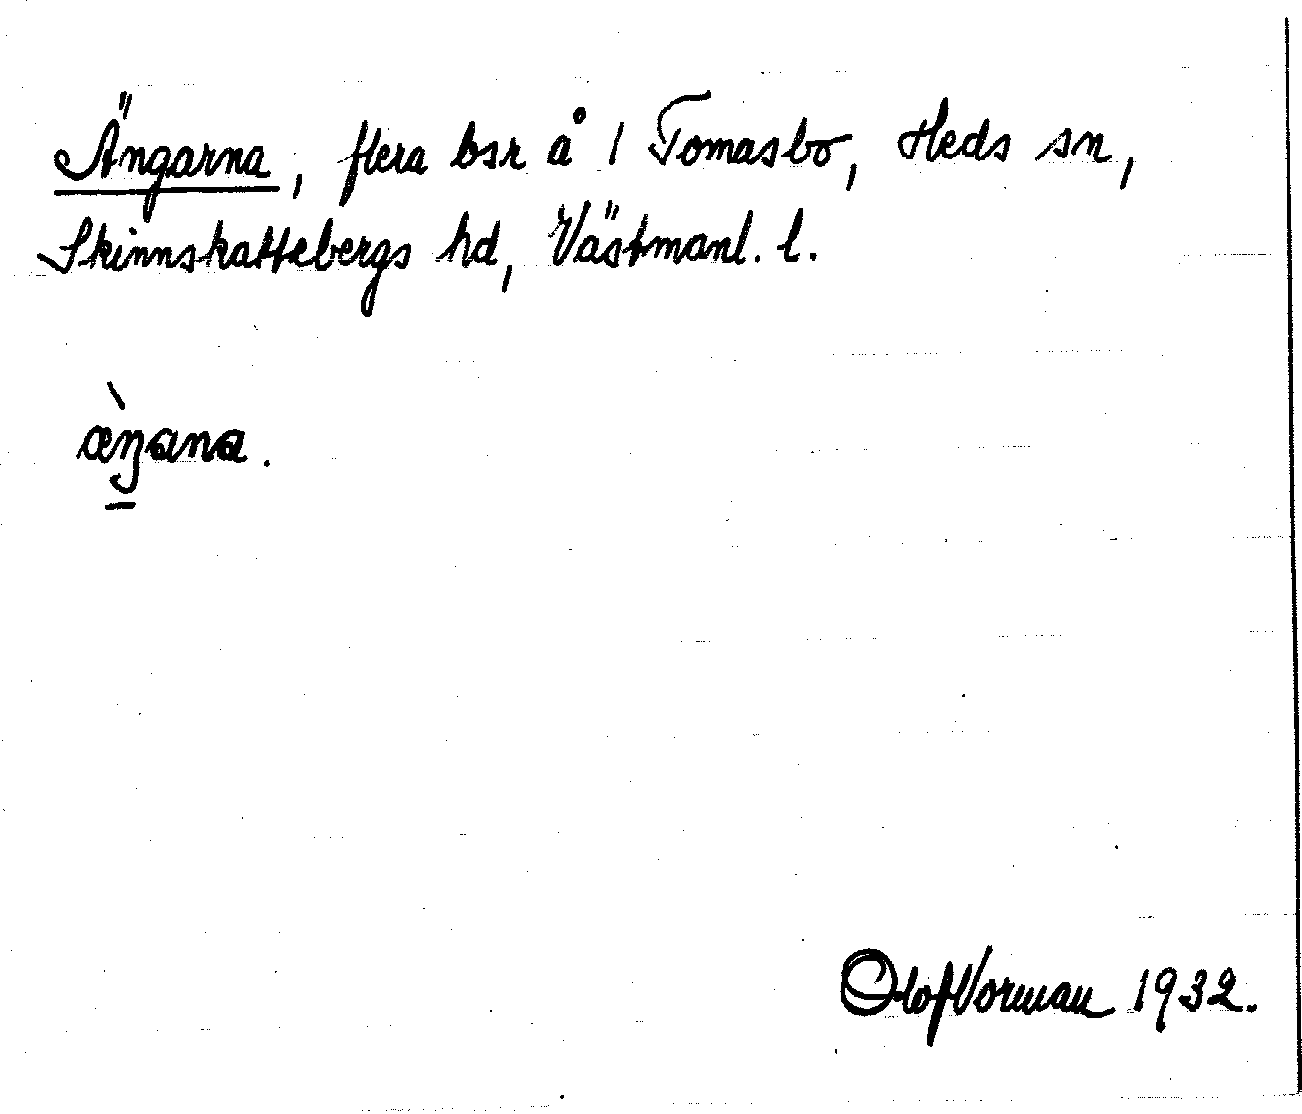 Ängarna, flera bsr å 1 Tomasbo, Heds sn,
Skinnskattebergs hd, Västmanl. l.
æ̀ŋana.
Olof Vorman 1932.